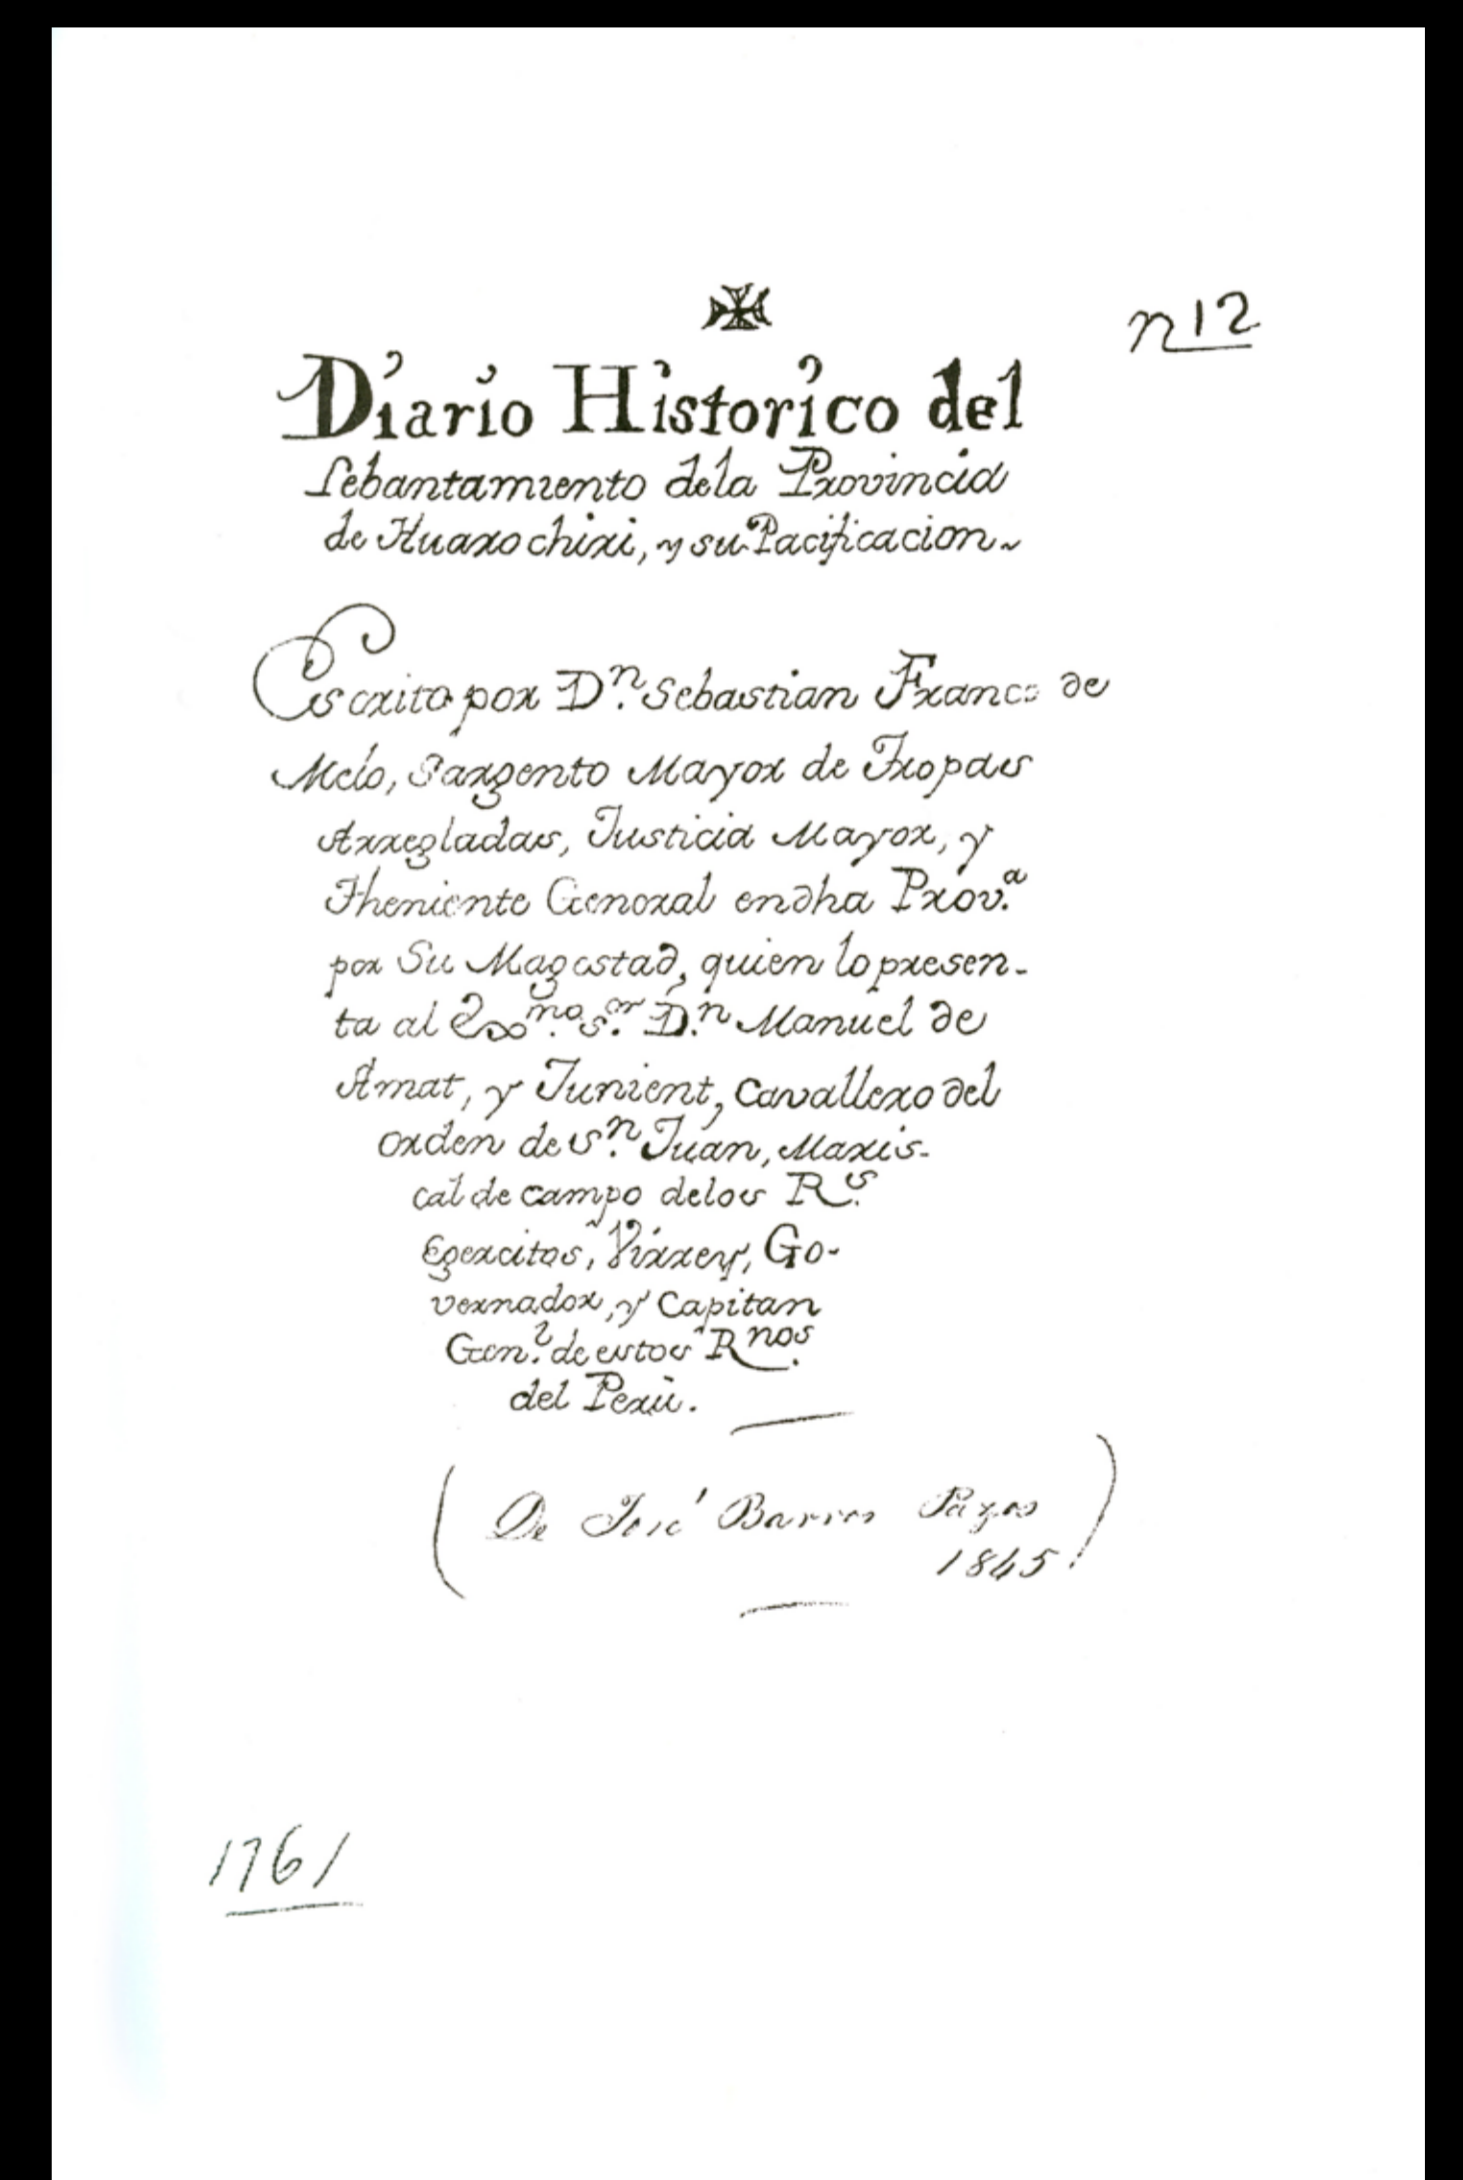 n 12
Diario Historico del
Lebantamiento dela Provincia
de Huarochiri, y su Pacificacion~
Escrito por Dn. Sebastian Franco de
Melo, Sargento Mayor de Tropas
Arregladas, Justicia Mayor, y
Theniente General en dha Prov.a
por Su Magestad, quien lo presen-
ta al Exmo. Sor. D.n Manuel de
Amat, y Junient, Cavallero del
orden de Sn. Juan, Maris-
cal de campo delos Rs.
Egercitos, Virrey, Go-
vernador, y Capitan
Gen.l de estos Rnos.
del Perù.
(De José Barros Pazos
1845)
1761